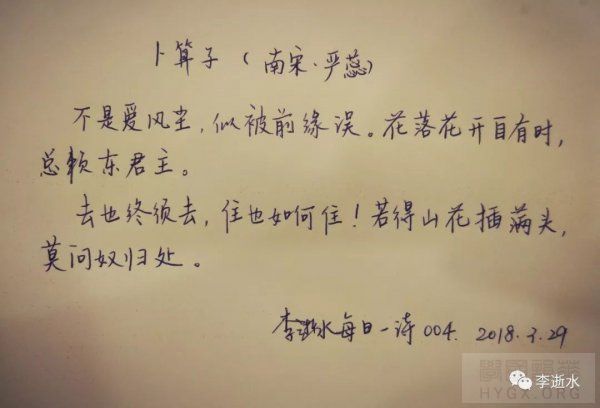 卜算子（南宋·严蕊）
不是爱风尘，似被前缘误。花落花开自有时，
总赖东君主。
去也终须去，住也如何住！若得山花插满头，
莫问奴归处。
李逝水每日一诗 004. 2018.3.29
李逝水
HYGX.ORG